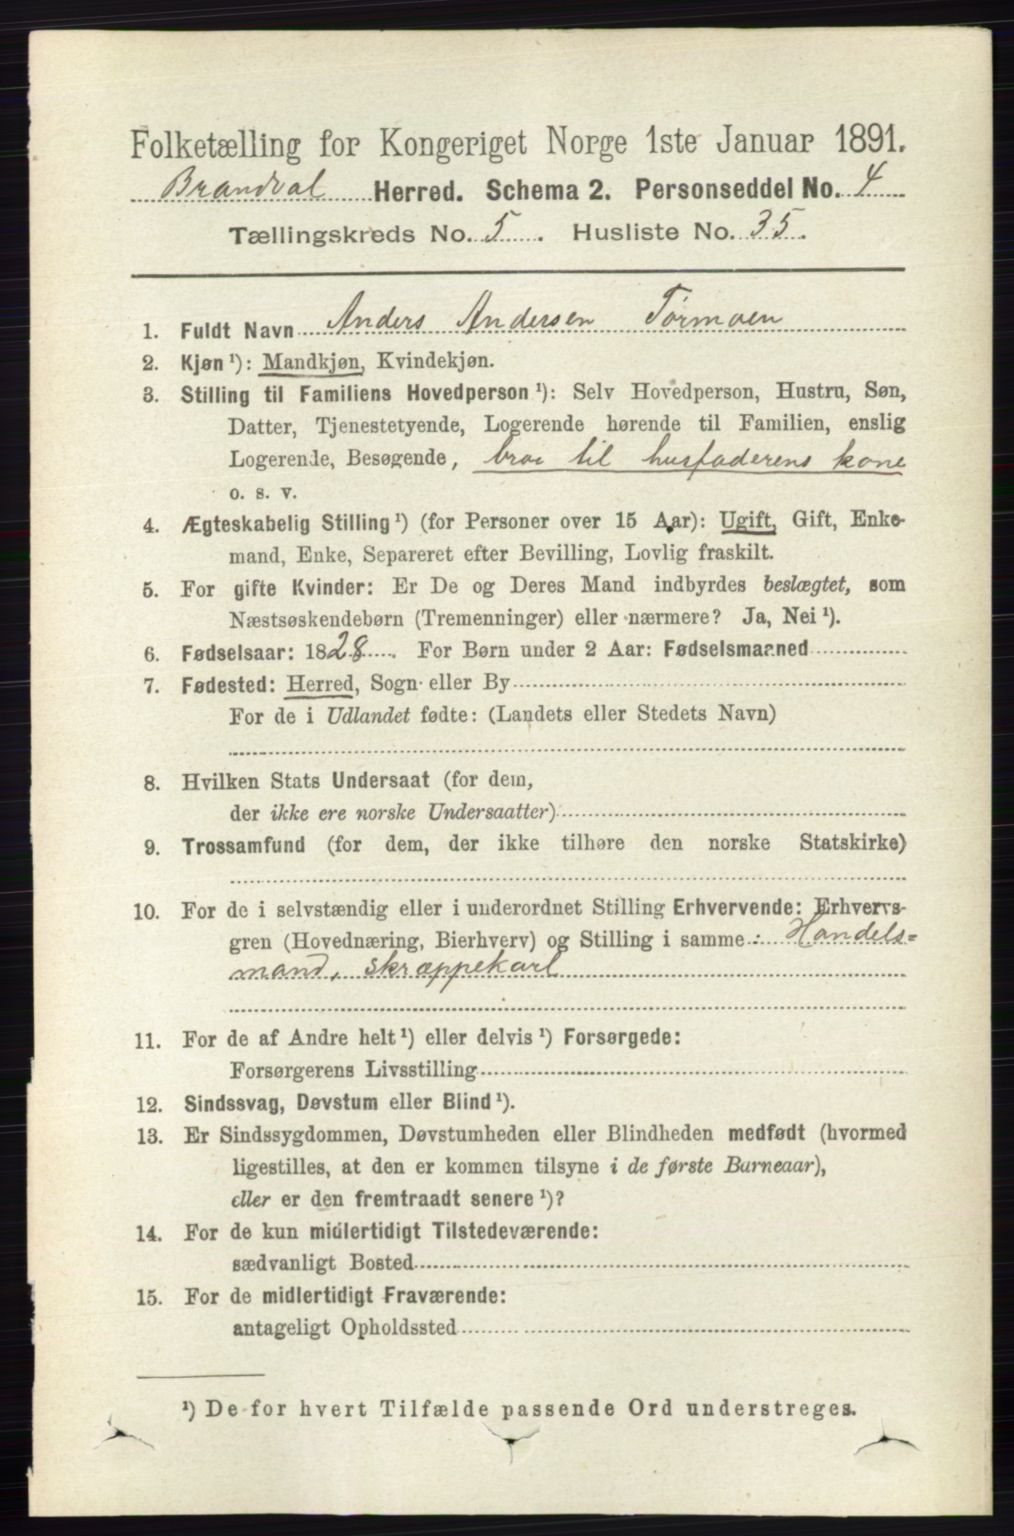 Folketælling for Kongeriget Norge 1ste Januar 1891.
Brandval Herred. Schema 2. Personseddel No. 4
Tællingskreds No. 5. Husliste No. 35.
1. Fuldt Navn Anders Andersen Tørmoen
2. Kjøn ¹): Mandkjøn, Kvindekjøn.
3. Stilling til Familiens Hovedperson ¹): Selv Hovedperson, Hustru, Søn,
Datter, Tjenestetyende, Logerende hørende til Familien, enslig
Logerende, Besøgende, bror til husfaderens kone
o. s. v.
4. Ægteskabelig Stilling ¹) (for Personer over 15 Aar): Ugift, Gift, Enke-
mand, Enke, Separeret efter Bevilling, Lovlig fraskilt.
5. For gifte Kvinder: Er De og Deres Mand indbyrdes beslægtet, som
Næstsøskendebørn (Tremenninger) eller nærmere? Ja, Nei ¹).
6. Fødselsaar: 1828. For Børn under 2 Aar: Fødselsmaaned
7. Fødested: Herred, Sogn eller By
For de i Udlandet fødte: (Landets eller Stedets Navn)
8. Hvilken Stats Undersaat (for dem,
der ikke ere norske Undersaatter)
9. Trossamfund (for dem, der ikke tilhøre den norske Statskirke)
10. For de i selvstændig eller i underordnet Stilling Erhvervende: Erhvervs-
gren (Hovednæring, Bierhverv) og Stilling i samme: Handels=
mand, skræppekarl
11. For de af Andre helt ¹) eller delvis ¹) Forsørgede:
Forsørgerens Livsstilling
12. Sindssvag, Døvstum eller Blind ¹).
13. Er Sindssygdommen, Døvstumheden eller Blindheden medfødt (hvormed
ligestilles, at den er kommen tilsyne i de første Barneaar),
eller er den fremtraadt senere ¹)?
14. For de kun midlertidigt Tilstedeværende:
sædvanligt Bosted
15. For de midlertidigt Fraværende:
antageligt Opholdssted
¹) De for hvert Tilfælde passende Ord understreges.